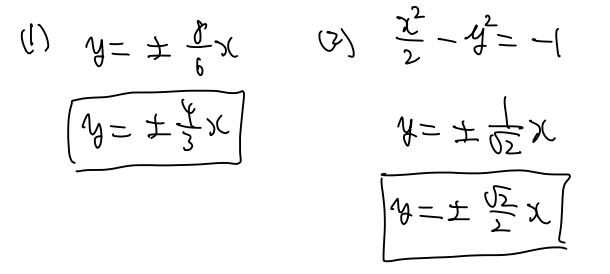 (1) y = ± 8/6 x
y = ± 4/3 x
(2) x²/2 - y² = -1
y = ± 1/√2 x
y = ± √2/2 x